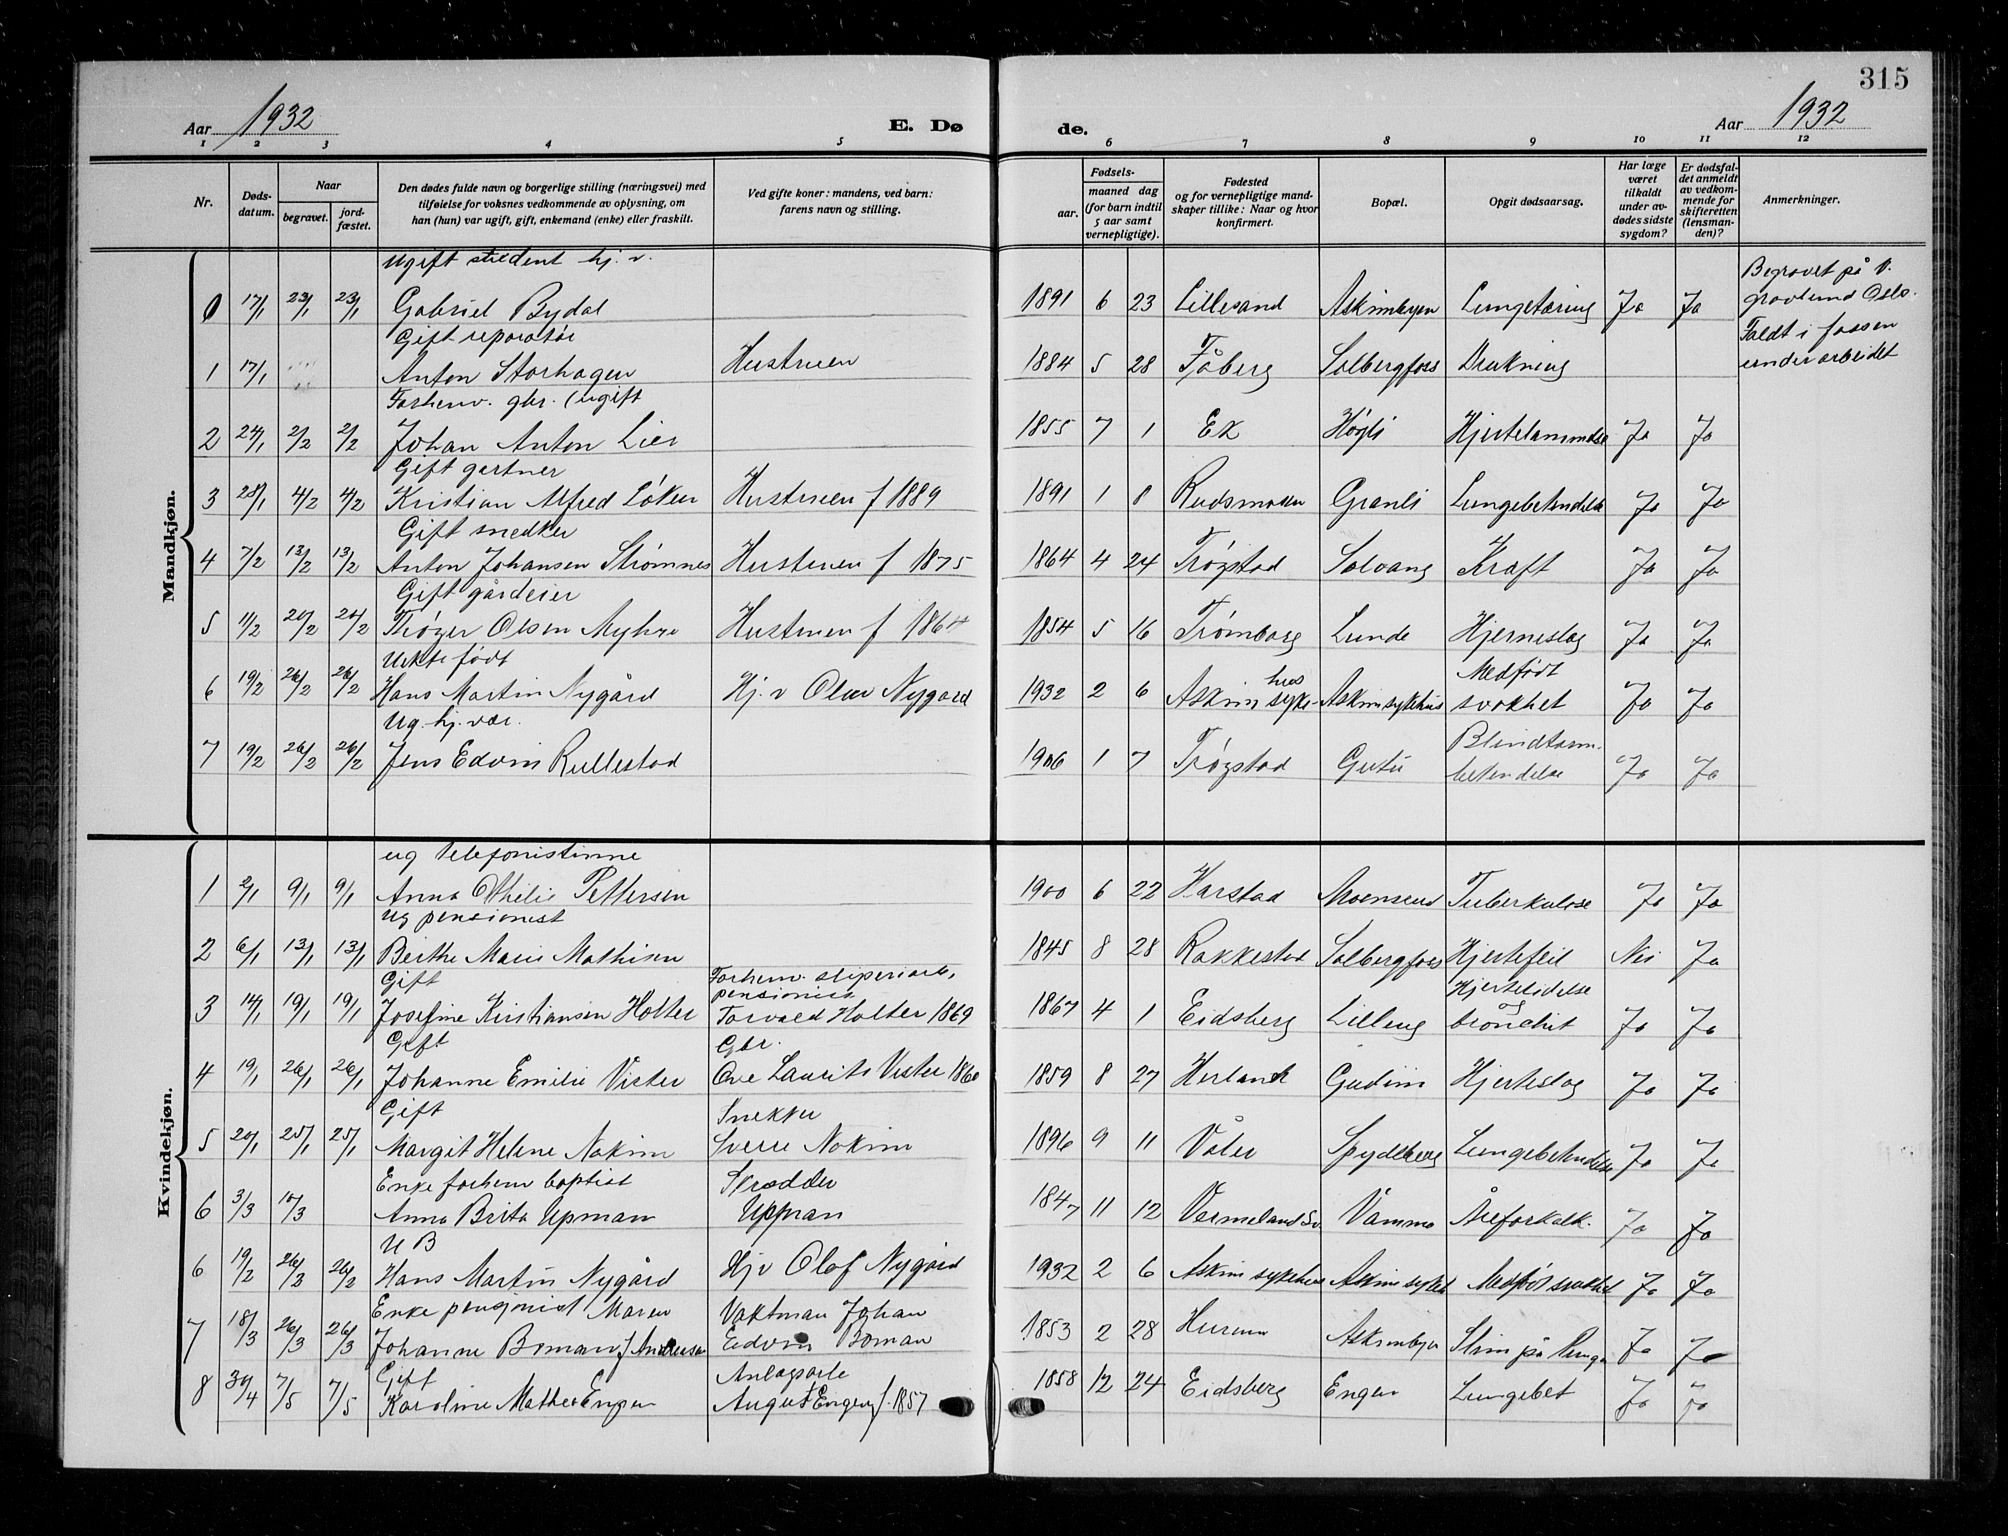 315
Aar 1932
E. Dø
de.
Aar 1932
1 2 3 4 5 6 7 8 9 10 11 12
Nr.
Døds-
datum.
Naar
begravet.
jord-
fæstet.
Den dødes fulde navn og borgerlige stilling (næringsvei) med
tilføielse for voksnes vedkommende av oplysning, om
han (hun) var ugift, gift, enkemand (enke) eller fraskilt.
Ved gifte koner: mandens, ved barn:
farens navn og stilling.
Fødsels-
aar.
maaned dag
(for barn indtil
5 aar samt
vernepligtige).
Fødested
og for vernepligtige mand-
skaper tillike: Naar og hvor
konfirmert.
Bopæl.
Opgit dødsaarsag.
Har læge
været
tilkaldt
under av-
dødes sidste
sygdom?
Er dødsfal-
det anmeldt
av vedkom-
mende for
skifteretten
(lensman-
den)?
Anmerkninger.
Mandkjøn.
Ugift student hj. v.
0 17/1 23/1 23/1 Gabriel Bydal 1891 6 23 Lillesand Askimbyen Lungetæring Ja Ja
Begravet på V.
gravlund Oslo.
Gift reparatør
1 17/1 Anton Storhagen Hustruen 1884 5 28 Fåberg Solbergfoss Drukning
Faldt i fossen
under arbeidet
Forhenv. gbr. (ugift
2 24/1 2/2 2/2 Johan Anton Lier 1855 7 1 Ek Høgli Hjertelammelse Ja Ja
Gift gartner
3 28/1 4/2 4/2 Kristian Alfred Løken Hustruen f 1889 1891 1 8 Rudsmoen Granli Lungebetendelse Ja Ja
Gift snedker
4 7/2 13/2 13/2 Anton Johansen Strømnes Hustruen f 1875 1864 4 24 Trøgstad Solvang Kraft Ja Ja
Gift gårdeier
5 11/2 20/2 20/2 Trøger Olsen Myhre Hustruen f 1864 1854 5 16 Trømborg Lunde Hjerneslag Ja Ja
Uekte født
6 19/2 26/2 26/2 Hans Martin Nygård Hj. v Olav Nygaard 1932 2 6 Askim syke-
hus Askim sykehus
Medfødt
svakhet Ja Ja
Ug. hj. vær.
7 19/2 26/2 26/2 Jens Edvin Rullestad 1906 1 7 Trøgstad Gutu
Blindtarm-
betendelse Ja Ja
Kvindekjøn.
ug telefonistinne
1 2/1 9/1 9/1 Anna Othelie Pettersen 1900 6 22 Harstad Moensund Tuberkulose Ja Ja
Ug pensionist
2 6/1 13/1 13/1 Berthe Marie Mathisen 1845 8 28 Rakkestad Solbergfoss Hjertefeil Nei Ja
Gift
Forhenv. sliperiarb,
pensionist
3 14/1 19/1 19/1 Josefine Kristiansen Holter Torvald Holter 1869 1867 4 1 Eidsberg Lilleng
Hjertelidelse
og
bronchit Ja Ja
Gift Gbr.
4 19/1 26/1 26/1 Johanne Emilie Vister Ove Laurits Vister 1860 1859 8 27 Herland Gudim Hjerteslag Ja Ja
Gift Snekker
5 20/1 25/1 25/1 Margit Helene Nakim Sverre Nakim 1896 9 11 Våler Spydeberg Lungebetendelse Ja Ja
Enke forhenv baptist Skredder
6 3/3 10/3 Anna Brita Upman Uppman 1847 11 12 Vermeland Sv. Vamma Åreforkalk. Ja Ja
U B
6 19/2 26/2 26/2 Hans Martin Nygård Hj v Olaf Nygård 1932 2 6 Askim sykehus Askim sykeh Medfød svakhet Ja Ja
Enke pensjonist Maren Vaktman Johan
7 18/3 26/3 26/3 Johanne Boman f Andersen Edvin Boman 1853 2 28 Hurum Askimbyen Slim på lunge Ja Ja
Gift Anlagsarb
8 30/4 7/5 7/5 Karoline Mathea Engen August Engen f. 1857 1858 12 24 Eidsberg Engen Lungebet Ja Ja